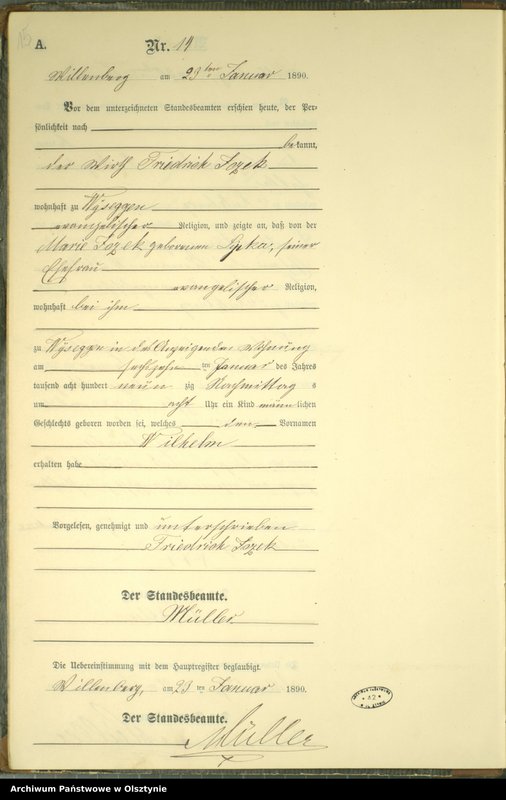 A.
Nr. 14
Willenberg am 23ten Januar 1890.
Vor dem unterzeichneten Standesbeamten erschien heute, der Per-
sönlichkeit nach
bekannt,
der Wirth Friedrich
wohnhaft zu Wyseggen
evangelischer Religion, und zeigte an, daß von der
Marie geborenen seiner
Ehefrau
evangelischer Religion,
wohnhaft bei ihm
zu Wyseggen in des Anzeigenden Wohnung
am sechszehnten Januar des Jahres
tausend acht hundert neunzig Nachmittags
um acht Uhr ein Kind männlichen
Geschlechts geboren worden sei, welches den Vornamen
Wilhelm
erhalten habe
Vorgelesen, genehmigt und unterschrieben
Friedrich
Der Standesbeamte.
Müller
Die Uebereinstimmung mit dem Hauptregister beglaubigt.
Willenberg, am 23ten Januar 1890.
Der Standesbeamte.
Müller
Archiwum Państwowe w Olsztynie